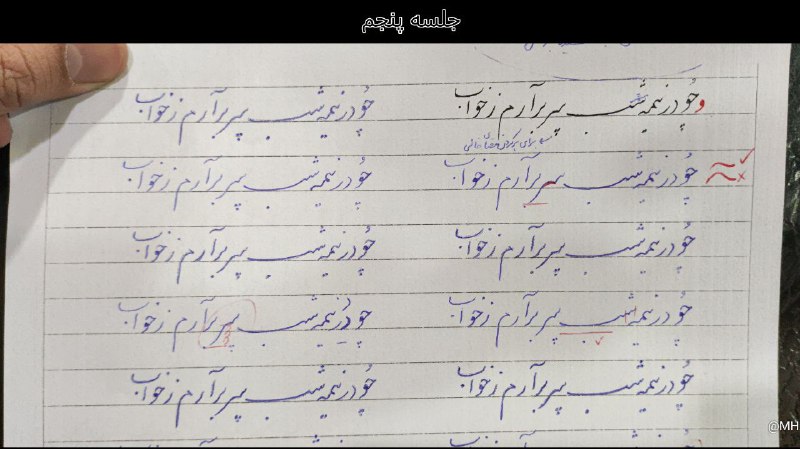 جلسه پنجم
چو در نیمه شب سر برآرم ز خواب چو در نیمه شب سر برآرم ز خواب
چو در نیمه شب سر برآرم ز خواب چو در نیمه شب سر برآرم ز خواب
چو در نیمه شب سر برآرم ز خواب چو در نیمه شب سر برآرم ز خواب
چو در نیمه شب سر برآرم ز خواب چو در نیمه شب سر برآرم ز خواب
چو در نیمه شب سر برآرم ز خواب چو در نیمه شب سر برآرم ز خواب
@MH